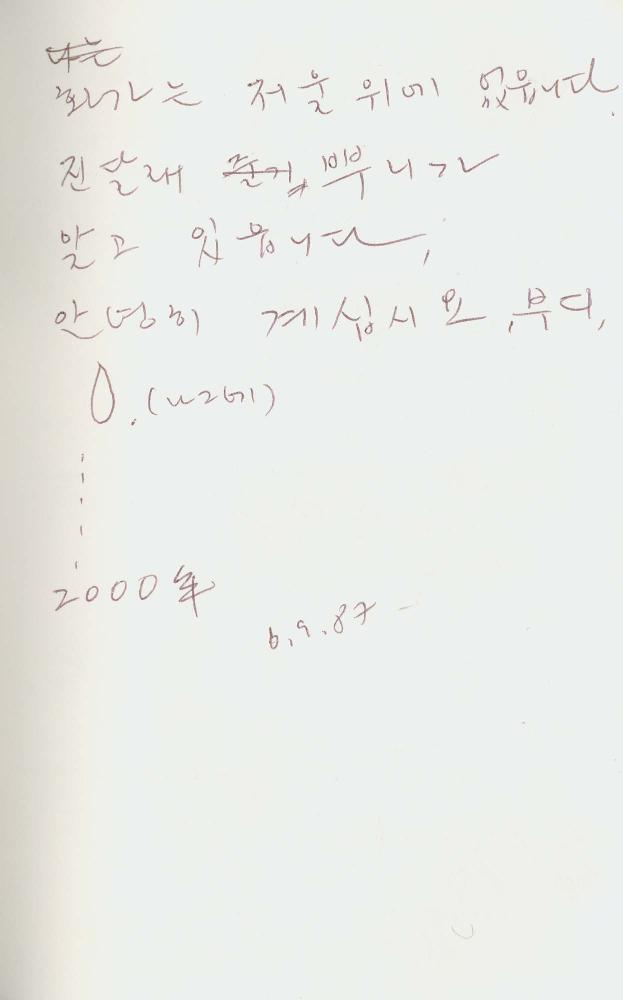 나는
화가는 저울 위에 없읍니다.
진달래 줄기, 뿌니가
알고 있읍니다,
안녕히 계십시요, 부디,
0. (나그네)
2000年
6.9.87